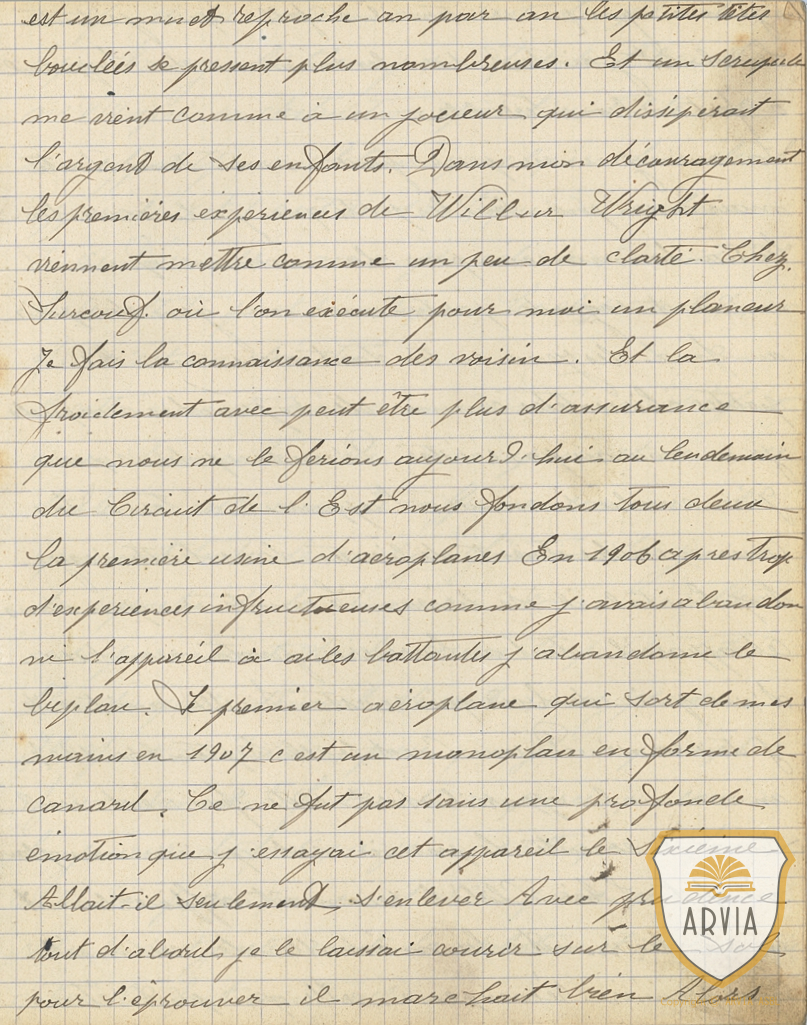 est un muet reproche an par an les petites têtes
bouclées se pressent plus nombreuses. Et un scrupule
me vient comme à un joueur qui dissiperait
l'argent de ses enfants. Dans mon découragement
les premières expériences de Wilbur Wright
viennent mettre comme un peu de clarté. Chez
Surcouf. où l'on exécute pour moi un planeur
Je fais la connaissance des voisin. Et la
froidement avec peut être plus d'assurance
que nous ne le ferions aujourd'hui au lendemain
du Circuit de l'Est nous fondons tous deux
la première usine d'aéroplanes En 1906 apres trop
d'expériences infructueuses comme j'avais abandon
né l'appareil à ailes battantes j'abandonne le
biplan. Le premier aéroplane qui sort de mes
mains en 1907 c est un monoplan en forme de
canard. Ce ne fut pas sans une profonde
émotion que j'essayai cet appareil le sixième
Allait-il seulement, s'enlever Avec prudence
tout d'abord je le laissai courir sur le sol
pour l'éprouver il marchait bien Alors
ARVIA